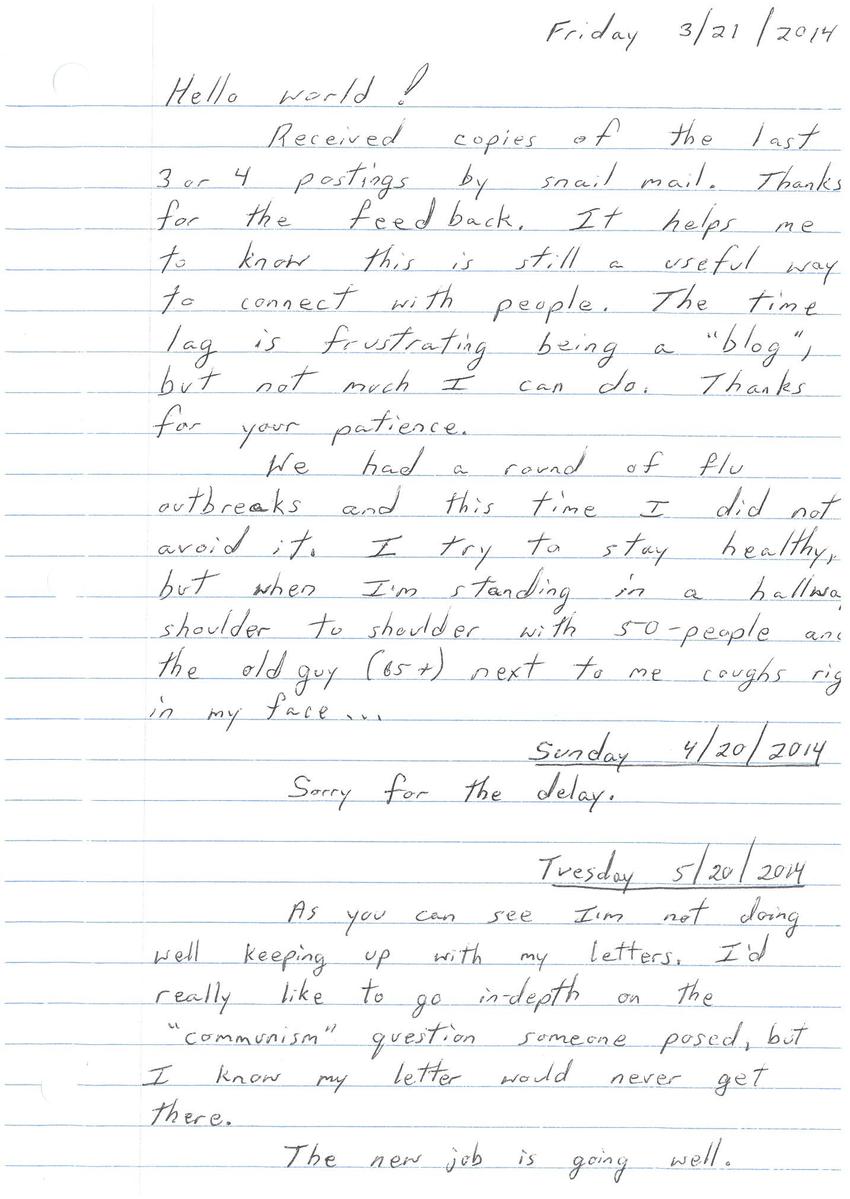 Friday 3/21/2014
Hello world!
Received copies of the last
3 or 4 postings by snail mail. Thanks
for the feedback. It helps me
to know this is still a useful way
to connect with people. The time
lag is frustrating being a "blog",
but not much I can do. Thanks
for your patience.
We had a round of flu
outbreaks and this time I did not
avoid it. I try to stay healthy,
but when I'm standing in a hallwa
shoulder to shoulder with 50-people an
the old guy (65+) next to me coughs rig
in my face...
Sunday 4/20/2014
Sorry for the delay.
Tuesday 5/20/2014
As you can see I'm not doing
well keeping up with my letters. I'd
really like to go in-depth on the
"communism" question someone posed, but
I know my letter would never get
there.
The new job is going well.